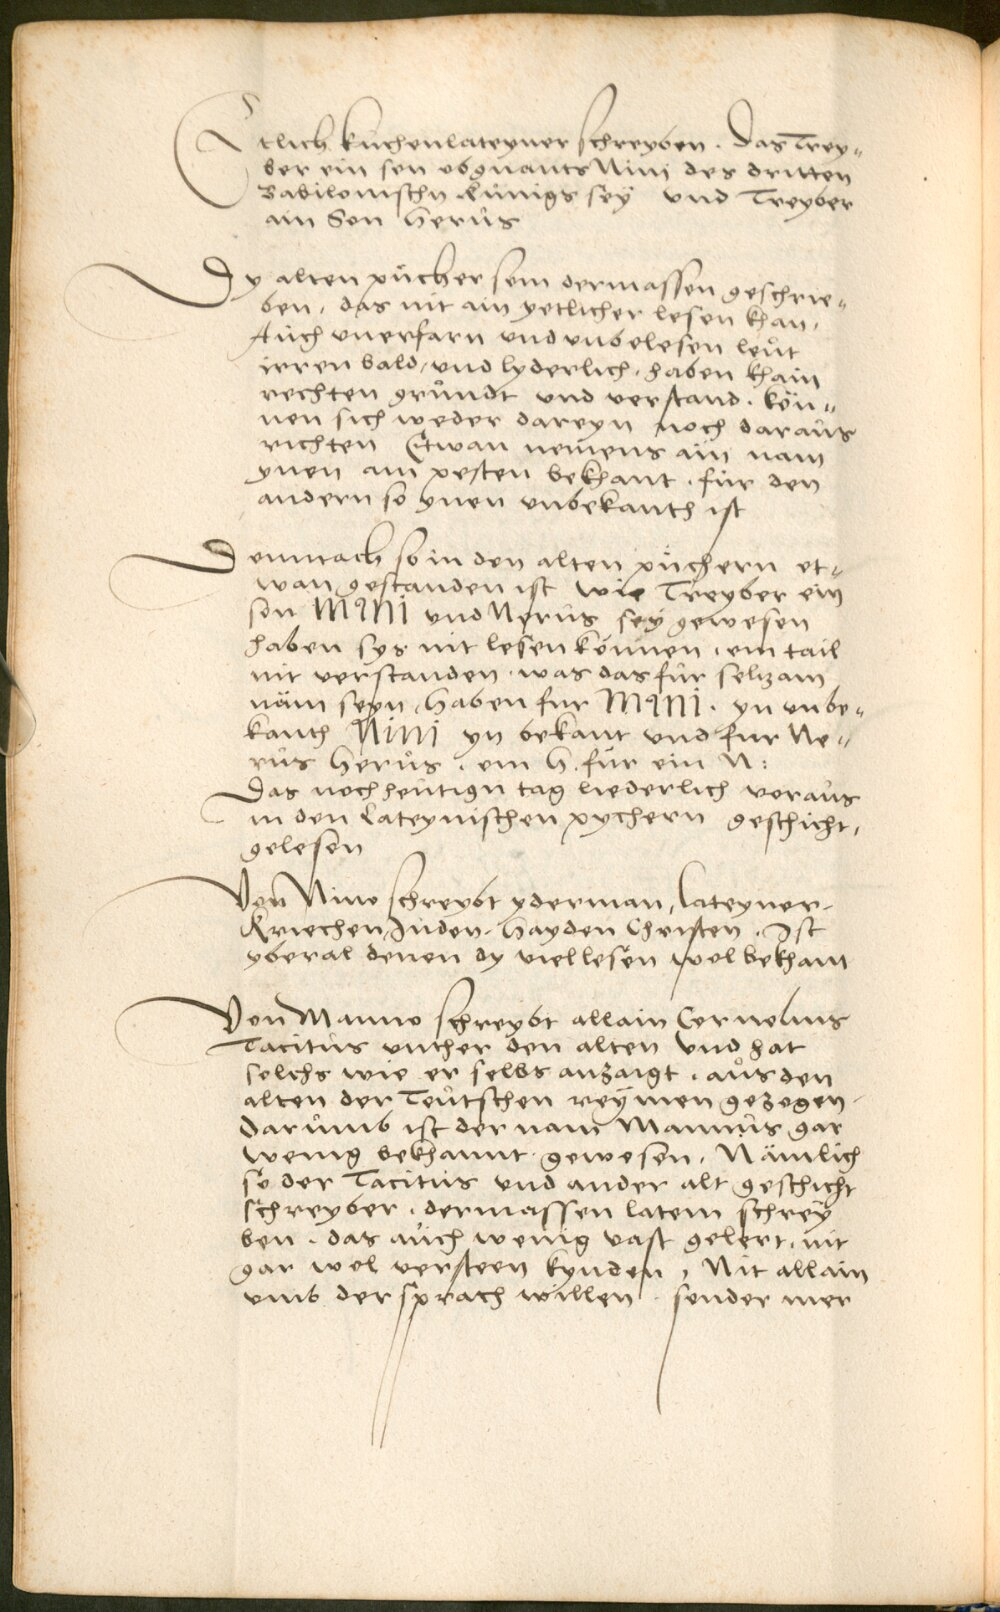 Etlich kuchenlateyner schreyben. Das Trey-
ber ein son obgnants Nini des dritten
Babilonischn Kunigs sey und Treyber
ain Son Herus
Dy alten pücher sein dermassen geschrie-
ben, das nit ain yetlicher lesen khan,
Auch unerfarn und unbelesen leut
irren bald, und lyderlich, haben khain
rechten gründt und verstand. kön-
nen sich weder dareyn noch daraus
richten Etwan nemens ain nam
ynen am pesten bekhant. für den
andern so ynen unbekanth ist
Demnach so in den alten püchern et-
wan gestanden ist wie Treyber ein
son Mani und Nerus sey gewesen
haben sys nit lesen können. ein tail
nit verstanden. was das für seltzam
näm seyn, haben fur Mani. yn unbe-
kanth Nini yn bekant und fur Ne-
rus Herus. ein H. für ein N:
Das noch heutign tag liederlich voraus
in den Lateynischen pychern geschicht,
gelesen
Von Nino schreybt yderman, Lateyner,
Kriechen, Juden, Hayden Christen. Ist
yberal denen dy viel lesen wol bekhant
Von Manno schreybt allain Cornelius
Tacitus unther den alten und hat
solchs wie er selbs anzaigt. aus den
alten der Teutschen reymen gezogen.
Darumb ist der nam Mannus gar
wenig bekhannt gewesen. Nämlich
so der Tacitus und ander alt geschicht
schreyber. dermassen latein schrey
ben. das auch wenig vast gelert. nit
gar wol versteen kynden, Nit allain
umb der sprach willen. sonder mer